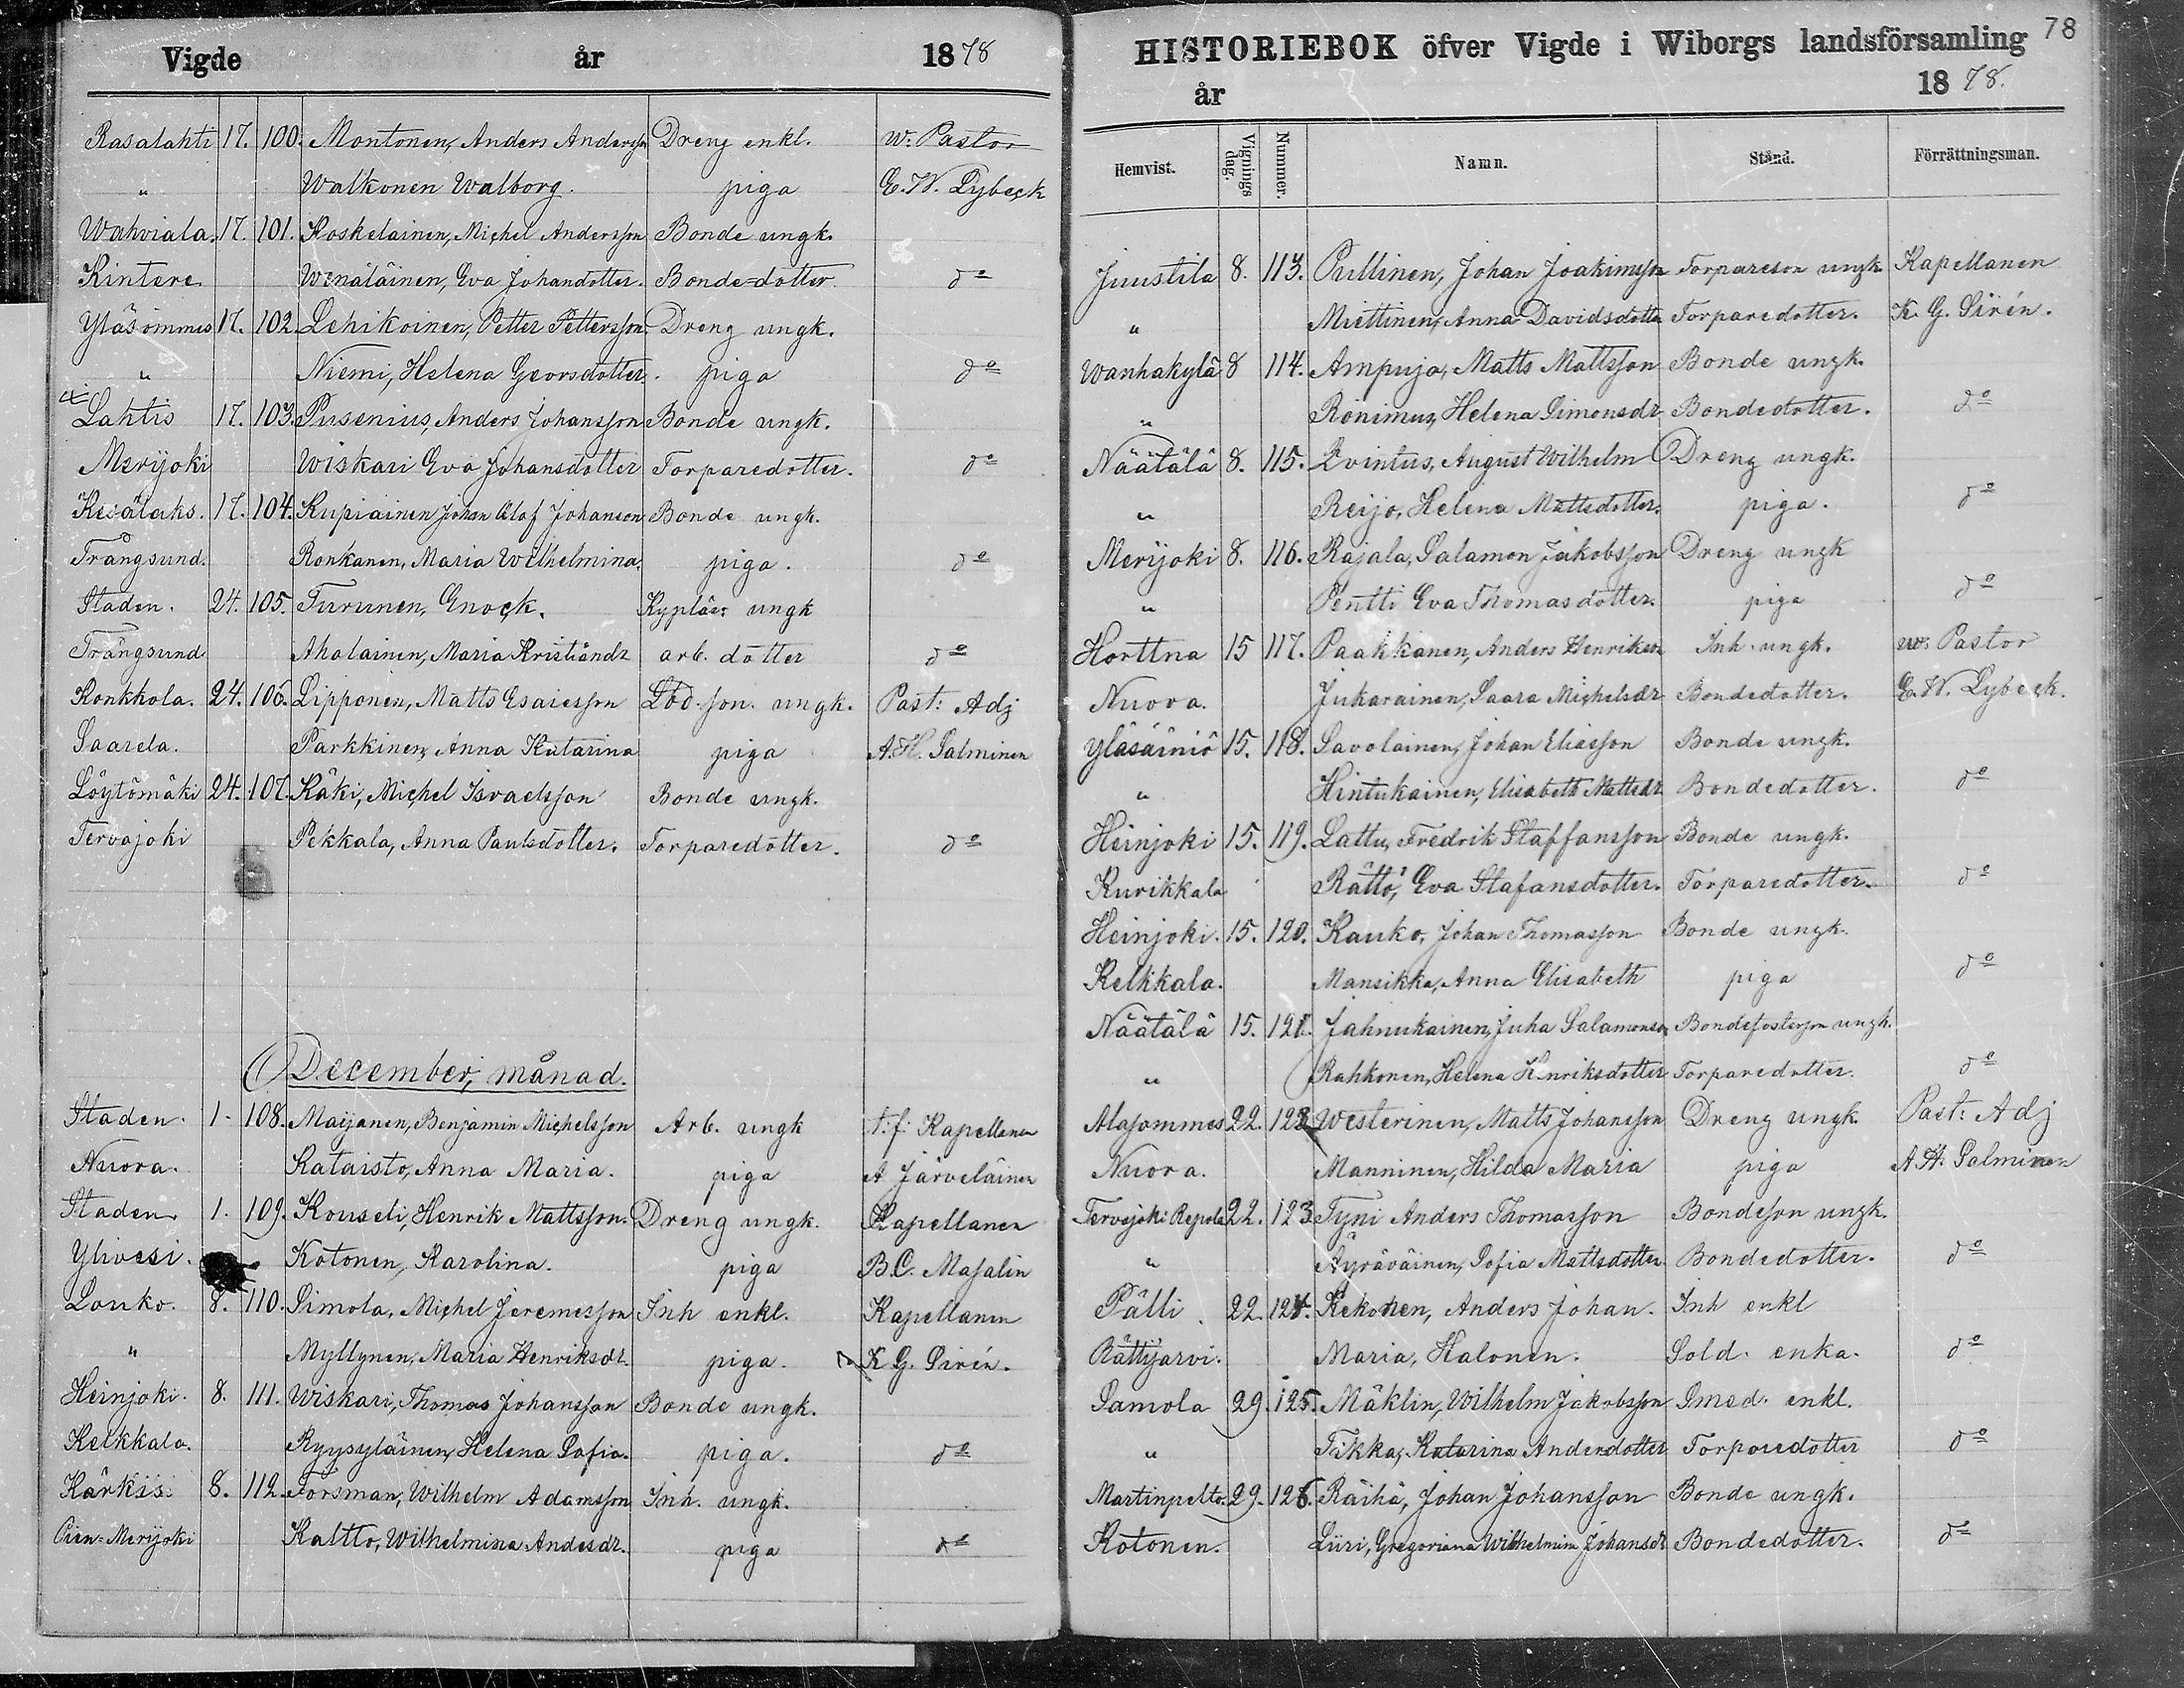 Vigde år 1878
Rasalahti 17. 100. Montonen, Anders Andersson Dreng enkl. w. Pastor
" Walkonen Walborg. piga E. W. Lybeck
Wahviala. 17. 101. Koskelainen, Michel Andersson Bonde ungk.
Kintere Wenäläinen, Eva Johandotter. Bonde=dotter do
Yläsommes 17. 102. Lehikoinen, Petter Pettersson Dreng ungk.
" Niemi, Helena Georsdotter. piga do
Lahtis 17. 103. Pusenius, Anders Johansson Bonde ungk.
Merijoki Wiskari Eva Johansdotter Torparedotter. do
Kesälaks. 17. 104. Kupiainen Johan Olof Johanson Bonde ungk.
Trångsund. Ronkanen, Maria Wilhelmina. piga. do
Staden. 24. 105. Turunen, Enock. Kypläer ungk
Trångsund Aholainen, Maria Kristiandr arb. dotter do
Konkkola. 24. 106. Lipponen, Matts Esaiesson Lod. son. ungk. Past: Adj
Saarela. Parkkinen, Anna Katarina piga A. H. Salminen
Löytömäki 24. 107. Käki, Michel Israelsson Bonde ungk.
Tervajoki Pekkala, Anna Paulsdotter. Torparedotter. do
December, månad.
Staden. 1. 108. Maijanen, Benjamin Michelsson Arb. ungk t.f. Kapellanen
Nuora. Kataisto, Anna Maria. piga A Järveläinen
Staden 1. 109. Kouseli, Henrik Mattsson. Dreng ungk. Kapellanen
Ylivesi. Kotonen, Karolina. piga B.C. Masalin
Louko. 8. 110. Simola, Michel Jeremesson Inh enkl. Kapellanen
" Myllynen, Maria Henriksdr. piga. K G. Sirén.
Heinjoki. 8. 111. Wiskari, Thomas Johansson Bonde ungk.
Kelkkala. Ryysyläinen, Helena Sofia. piga. do
Kärkis. 8. 112. Forsman, Wilhelm Adamsson Inh. ungk.
Pien=Merijoki Kaltto, Wilhelmina Andesdr. piga do
78
HISTORIEBOK öfver Vigde i Wiborgs landsförsamling
år 1878.
Hemvist. Vignings dag. Nummer. Namn. Stånd. Förrättningsman.
Juustila 8. 113. Pullinen, Johan Joakimsson Torpareson ungk Kapellanen
" Miettinen, Anna Davidsdotter Torparedotter. K. G. Sirén.
Wanhakylä 8 114. Ampuja, Matts Mattsson Bonde ungk.
" Ronimus, Helena Simonsdr Bondedotter. do
Näätälä 8. 115. Qvintus, August Wilhelm Dreng ungk.
" Reijo, Helena Mattsdotter. piga. do
Merijoki 8. 116. Rajala, Salamon Jakobsson Dreng ungk
" Pentti Eva Thomasdotter. piga do
Horttna 15 117. Paakkanen, Anders Henrikson Inh. ungk. w. Pastor
Nuora. Jukarainen, Saara Michelsdr Bondedotter. E. W. Lybeck.
Yläsäiniö 15. 118. Savolainen, Johan Eliasson Bonde ungk.
" Hintukainen, Elisabeth Mattsdr Bondedotter. do
Heinjoki 15. 119. Lattu, Fredrik Staffansson Bonde ungk.
Kurikkala Rättö, Eva Stafansdotter. Torparedotter. do
Heinjoki. 15. 120. Kauko, Johan Thomasson Bonde ungk.
Kelkkala. Mansikka, Anna Elisabeth piga do
Näätälä 15. 121. Jahnukainen, Juha Salamonson Bondefosterson ungk.
" Rahkonen, Helena Henriksdotter Torparedotter. do
Alasommes 22. 122 Westerinen, Matts Johansson Dreng ungk. Past: Adj
Nuora. Manninen, Hilda Maria piga A. H. Salminen
Tervajoki Repola 22. 123 Tyni Anders Thomasson Bondeson ungk.
" Äyräväinen, Sofia Mattsdotter Bondedotter. do
Pälli 22. 124. Kekonen, Anders Johan. Inh enkl
Rättijärvi. Maria, Halonen. Sold. enka. do
Samola 29. 125. Mäklin, Wilhelm Jakobsson Smed. enkl.
" Tikka, Katarina Andersdotter Torparedotter do
Martinpelto. 29. 126. Räihä, Johan Johansson Bonde ungk.
Kotonen. Liiri, Gregoriana Wilhelmina Johansdr Bondedotter. do